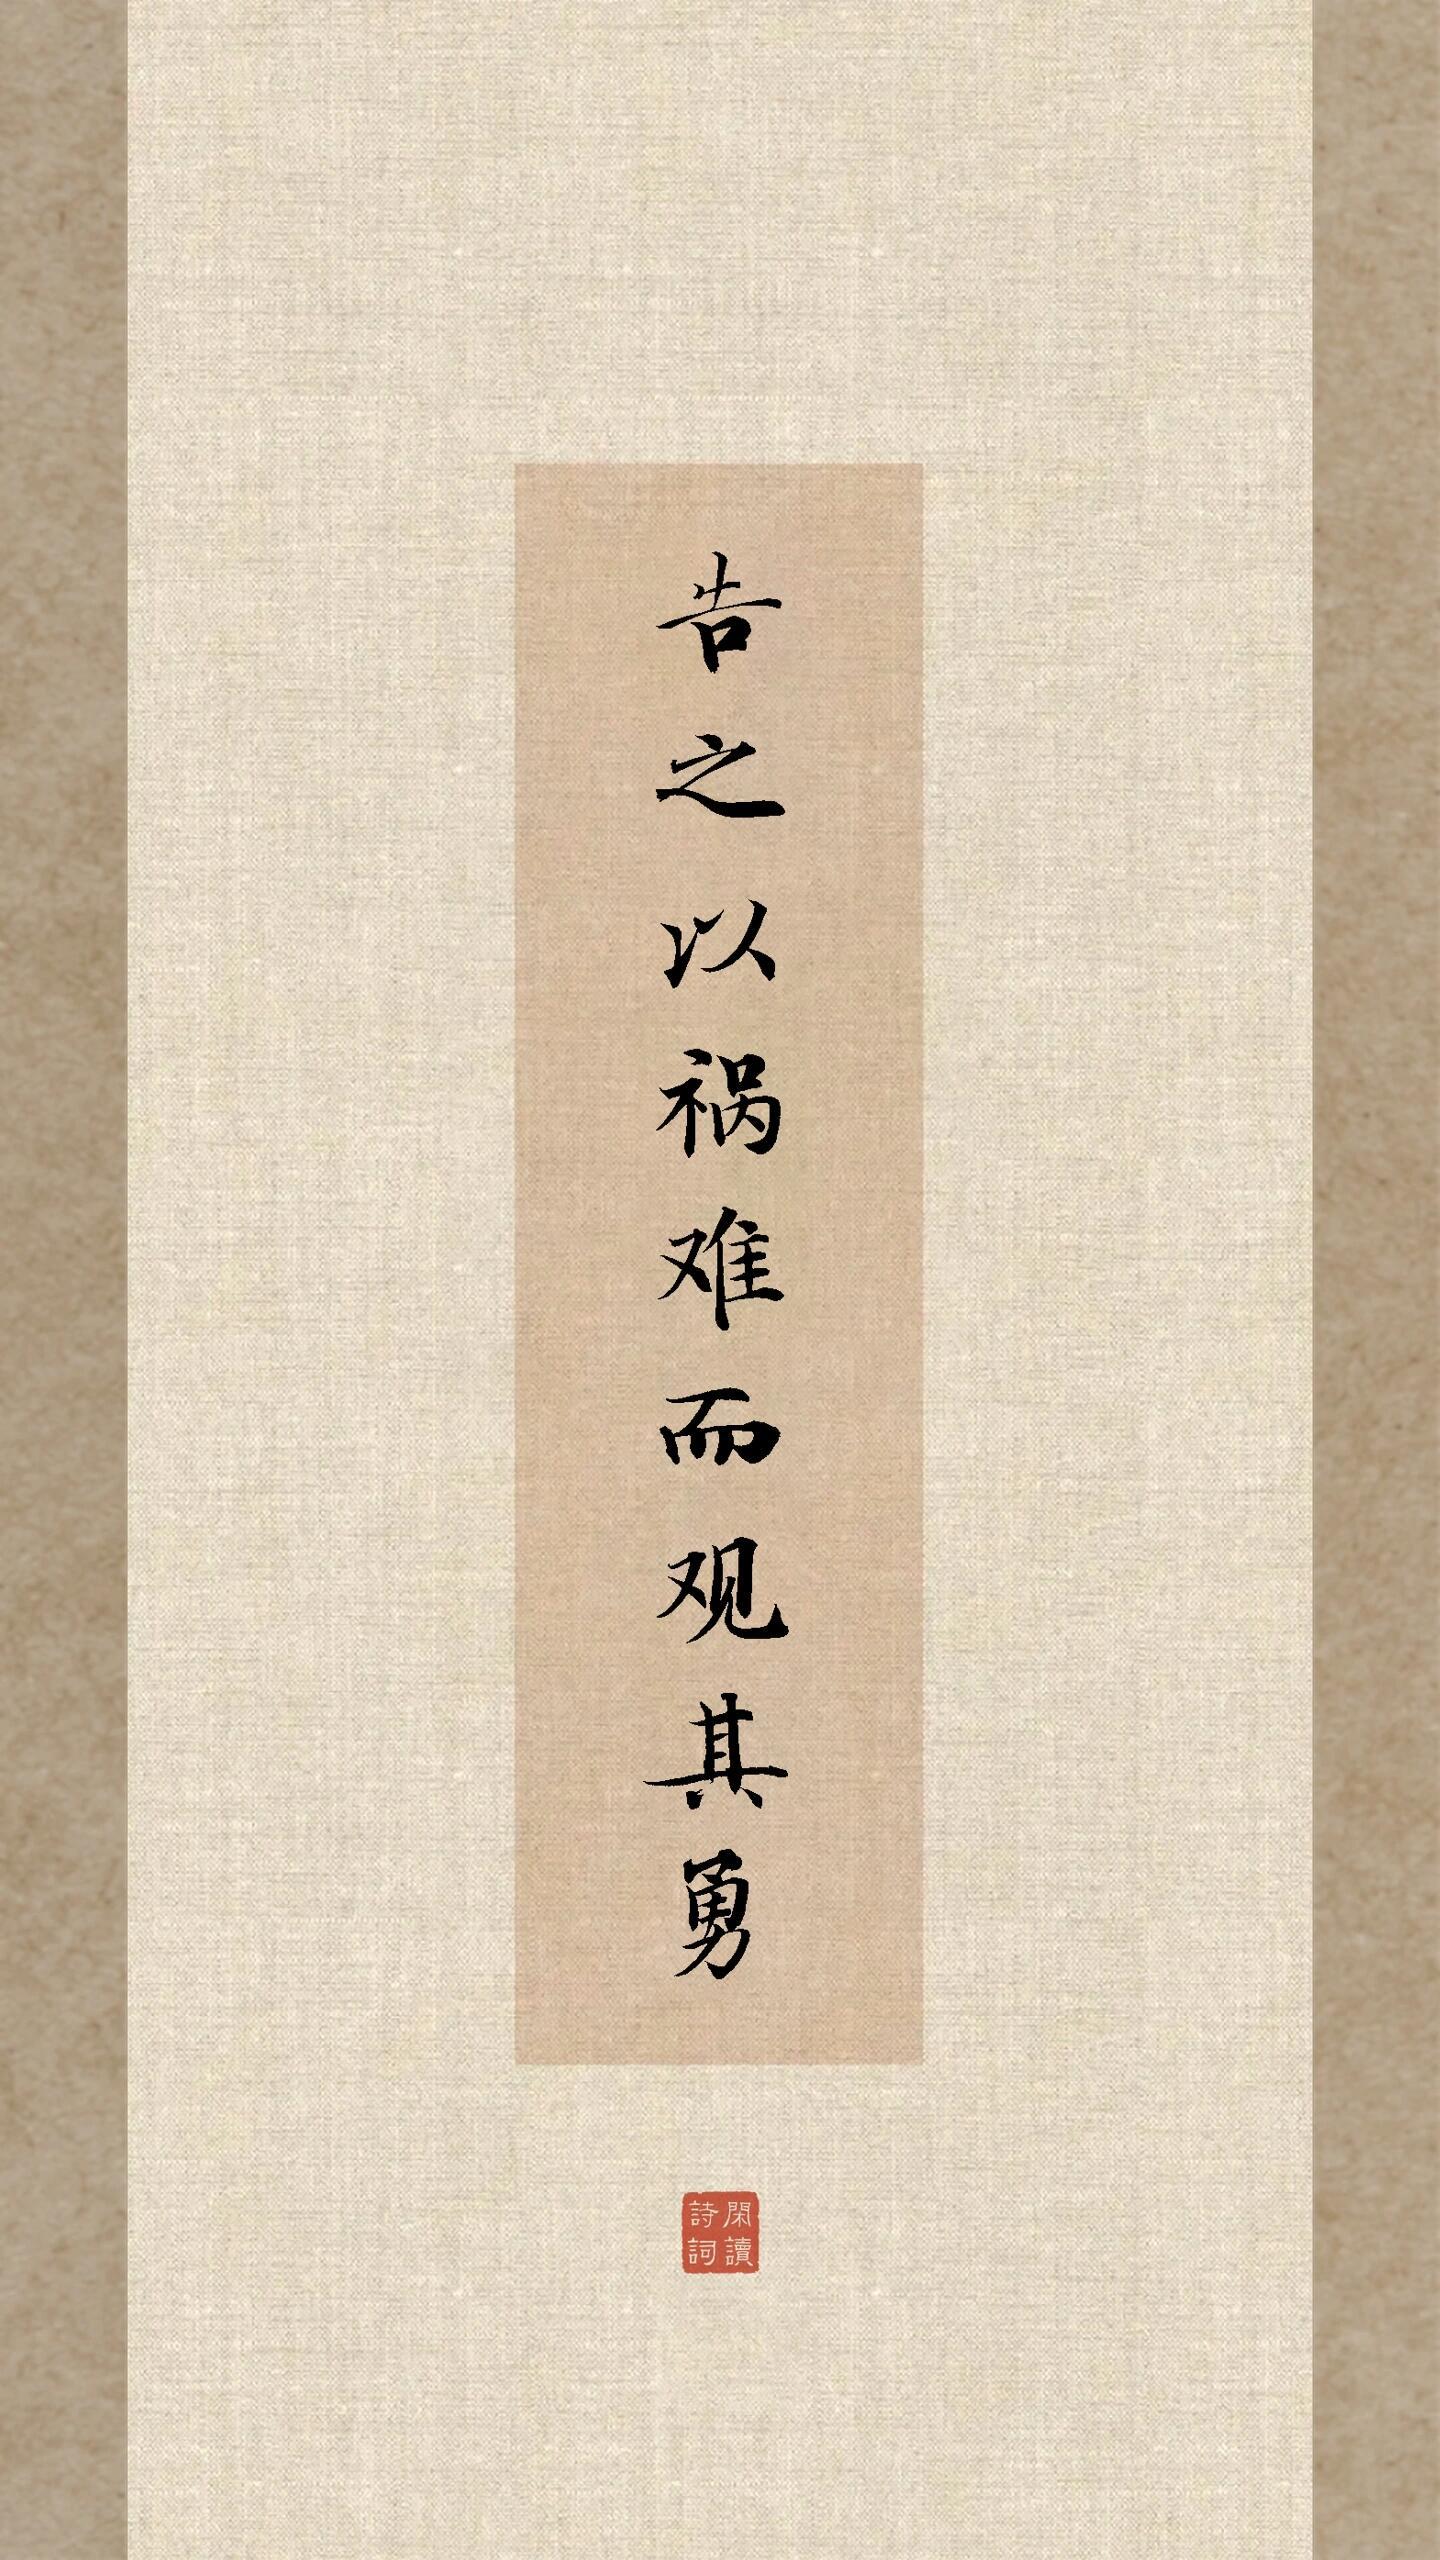 告之以祸难而观其勇
閑讀
詩詞